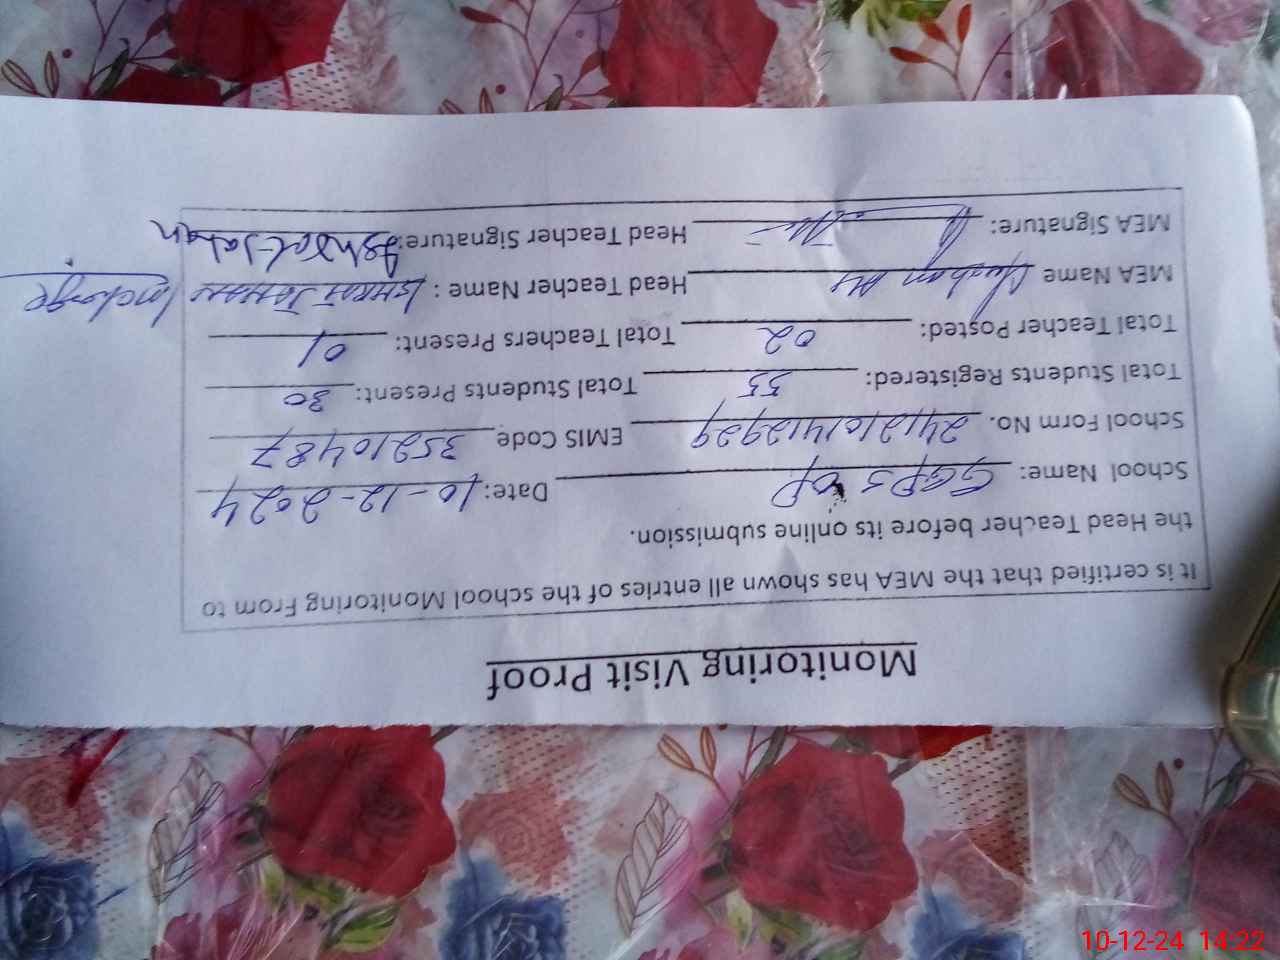 Monitoring Visit Proof
It is certified that the MEA has shown all entries of the school Monitoring From to
the Head Teacher before its online submission.
School Name: GGPS Date: 10-12-2024
School Form No. 2412101412929 EMIS Code 35210487
Total Students Registered: 55 Total Students Present: 30
Total Teacher Posted: 02 Total Teachers Present: 01
MEA Name Head Teacher Name : ISHRAT JAHAN Incharge
MEA Signature: Head Teacher Signature: Ishrat Jahan
10-12-24 14:22